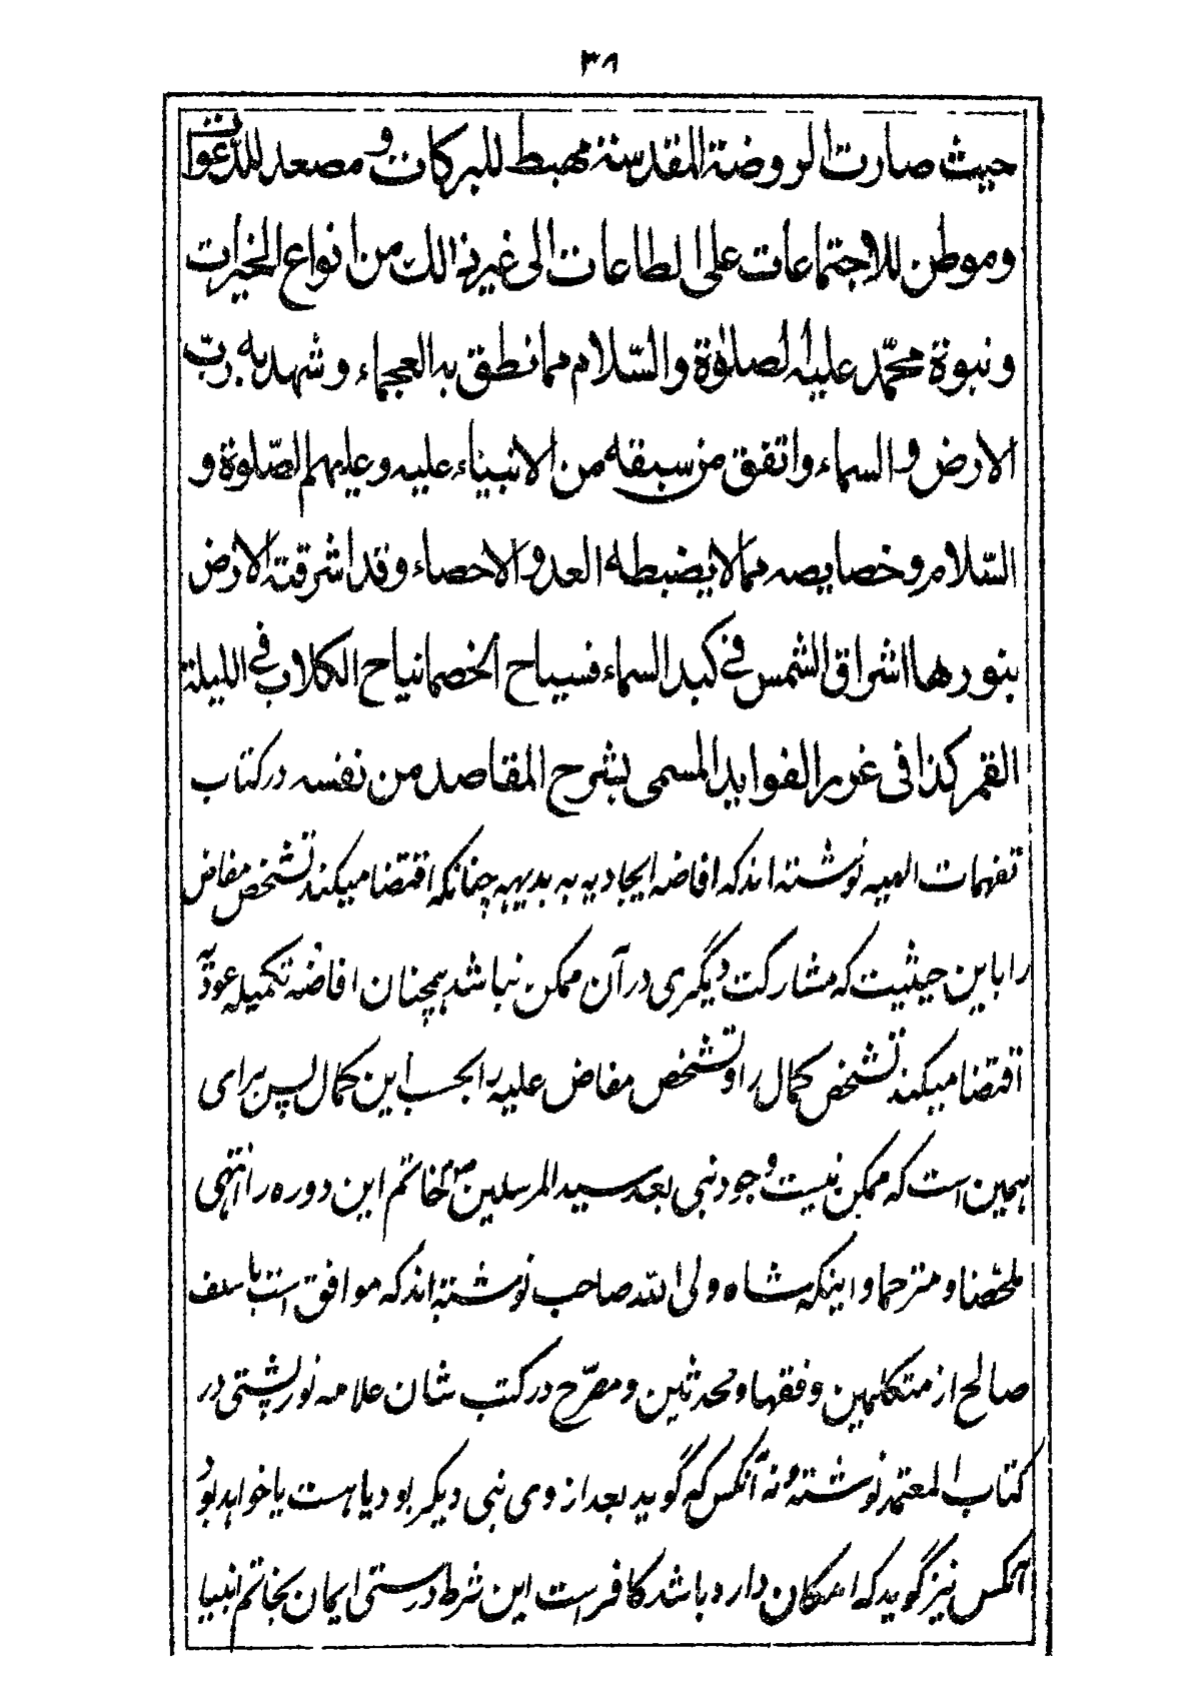 ٣٨
حیث صارت الروضة المقدسة مهبط للبرکات و مصعد للدعوات
وموطن للاجتماعات علی الطاعات الی غیر ذالك من انواع الخیرات
ونبوة محمّد علیه الصلوٰة والسّلام مما نطق به العجماء وشهد به ربّ
الارض و السماء واتفق من سبقه من الانبیاء علیه وعلیهم الصّلوة و
السّلام وخصایصه مما لا یضبطه العد و الاحصاء وقد اشرقت الارض
بنورها اشراق الشمس فی کبد السماء فسیاح الخصما نیاح الکلاب فی اللیلة
القمر کذا فی غرر الفواید المسمی بشرح المقاصد من نفسه در کتاب
تفهمات الهیه نوشته اند که افاضه ایجادیه به بدیهه چنانکه اقتضا میکند تشخص مفاض
را باین حیثیت که مشارکت دیگری در آن ممکن نباشد همچنان افاضه تکمیله عودیّه
اقتضا میکند تشخص کمال را و تشخص مفاض علیه را بحسب این کمال پس برای
همین است که ممکن نیست وجود نبی بعد سید المرسلین صلعم خاتم این دوره را انتهی
ملخصا و مترحما و اینکه شاه ولی الله صاحب نوشته اند که موافق است با سلف
صالح از متکلمین و فقها و محدثین و مصرّح در کتب شان علامه نورپشتی در
کتاب المعتمد نوشته و نه آنکس که گوید بعد از وی نبی دیگر بود یا هست یا خواهد بود
آنکس نیز گوید که امکان دارد باشد کافرست این شرط درستی ایمان بخاتم انبیا